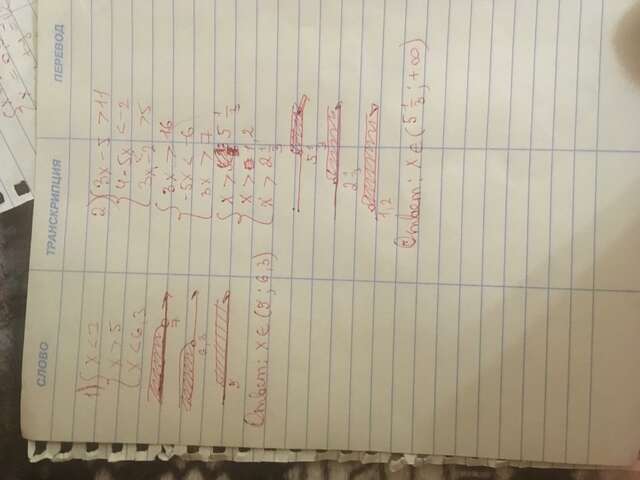 СЛОВО
ТРАНСКРИПЦИЯ
ПЕРЕВОД
1) { x < 7
x > 5
x < 6,3
7
6,3
5
Ответ: x ∈ (5 ; 6,3)
2) { 3x - 5 > 11
4 - 5x < -2
3x - 2 > 5
{ 3x > 16
-5x < -6
3x > 7
{ x > 5 1/3
x > 1,2
x > 2 1/3
5 1/3
2 1/3
1,2
Ответ: x ∈ (5 1/3 ; +∞)